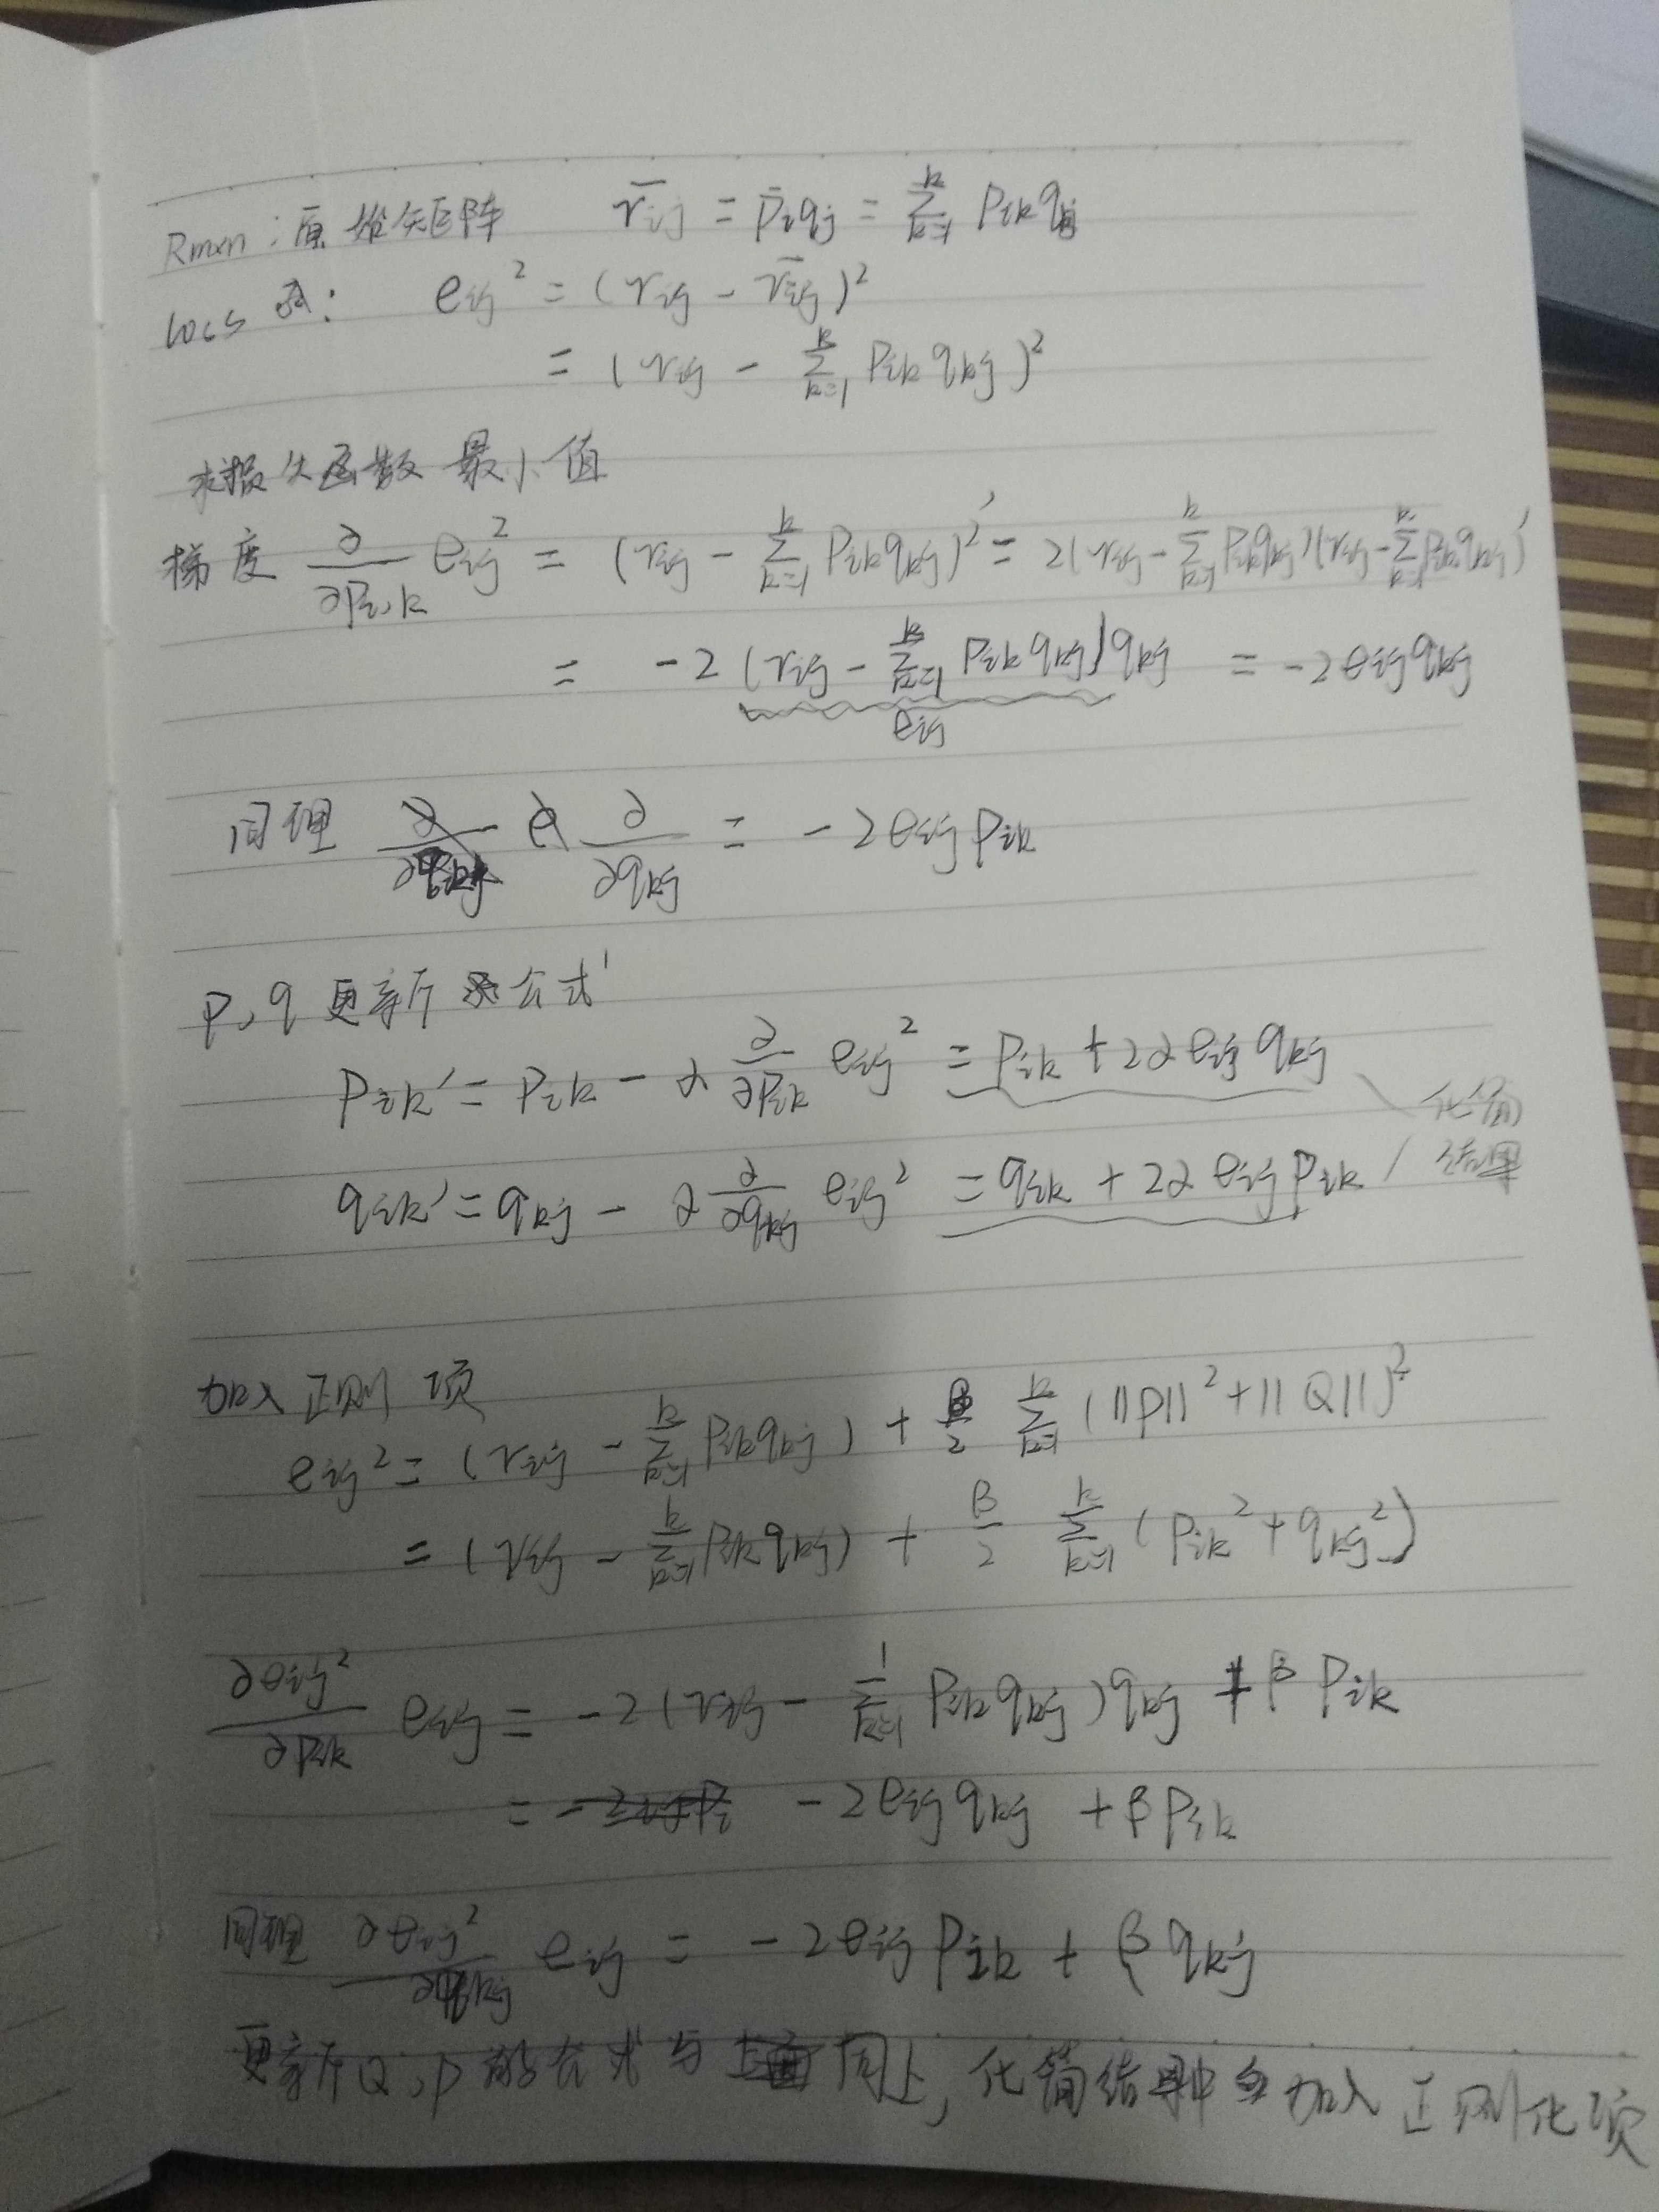 Rmxn：原始矩阵 r̄ij = p̄iqj = Σ_{k=1}^{k} Pik qkj
loss 函： eij² = (rij - r̄ij)²
= (rij - Σ_{k=1}^{k} Pik qkj)²
求损失函数最小值
梯度 ∂/∂Pi,k eij² = (rij - Σ_{k=1}^{k} Pik qkj)²′ = 2(rij - Σ_{k=1}^{k} Pik qkj)(rij - Σ_{k=1}^{k} Pik qkj)′
= -2 (rij - Σ_{k=1}^{k} Pik qkj) qkj = -2eij qkj
eij
同理 ∂/∂qkj = -2eij Pik
P,q 更新公式
Pik′ = Pik - α ∂/∂Pik eij² = Pik + 2α eij qkj
化简
qik′ = qkj - α ∂/∂qkj eij² = qik + 2α eij Pik
结果
加入正则项
eij² = (rij - Σ_{k=1}^{k} Pik qkj) + β/2 Σ_{k=1}^{k} (||P||² + ||Q||)²
= (rij - Σ_{k=1}^{k} Pik qkj) + β/2 Σ_{k=1}^{k} (Pik² + qkj²)
∂eij²/∂Pik eij = -2(rij - Σ_{k=1}^{1} Pik qkj) qkj + β Pik
= -2eij qkj + β Pik
同理 ∂eij²/∂qkj eij = -2eij Pik + β qkj
更新Q,P的公式与同上，化简结果中加入正则化项